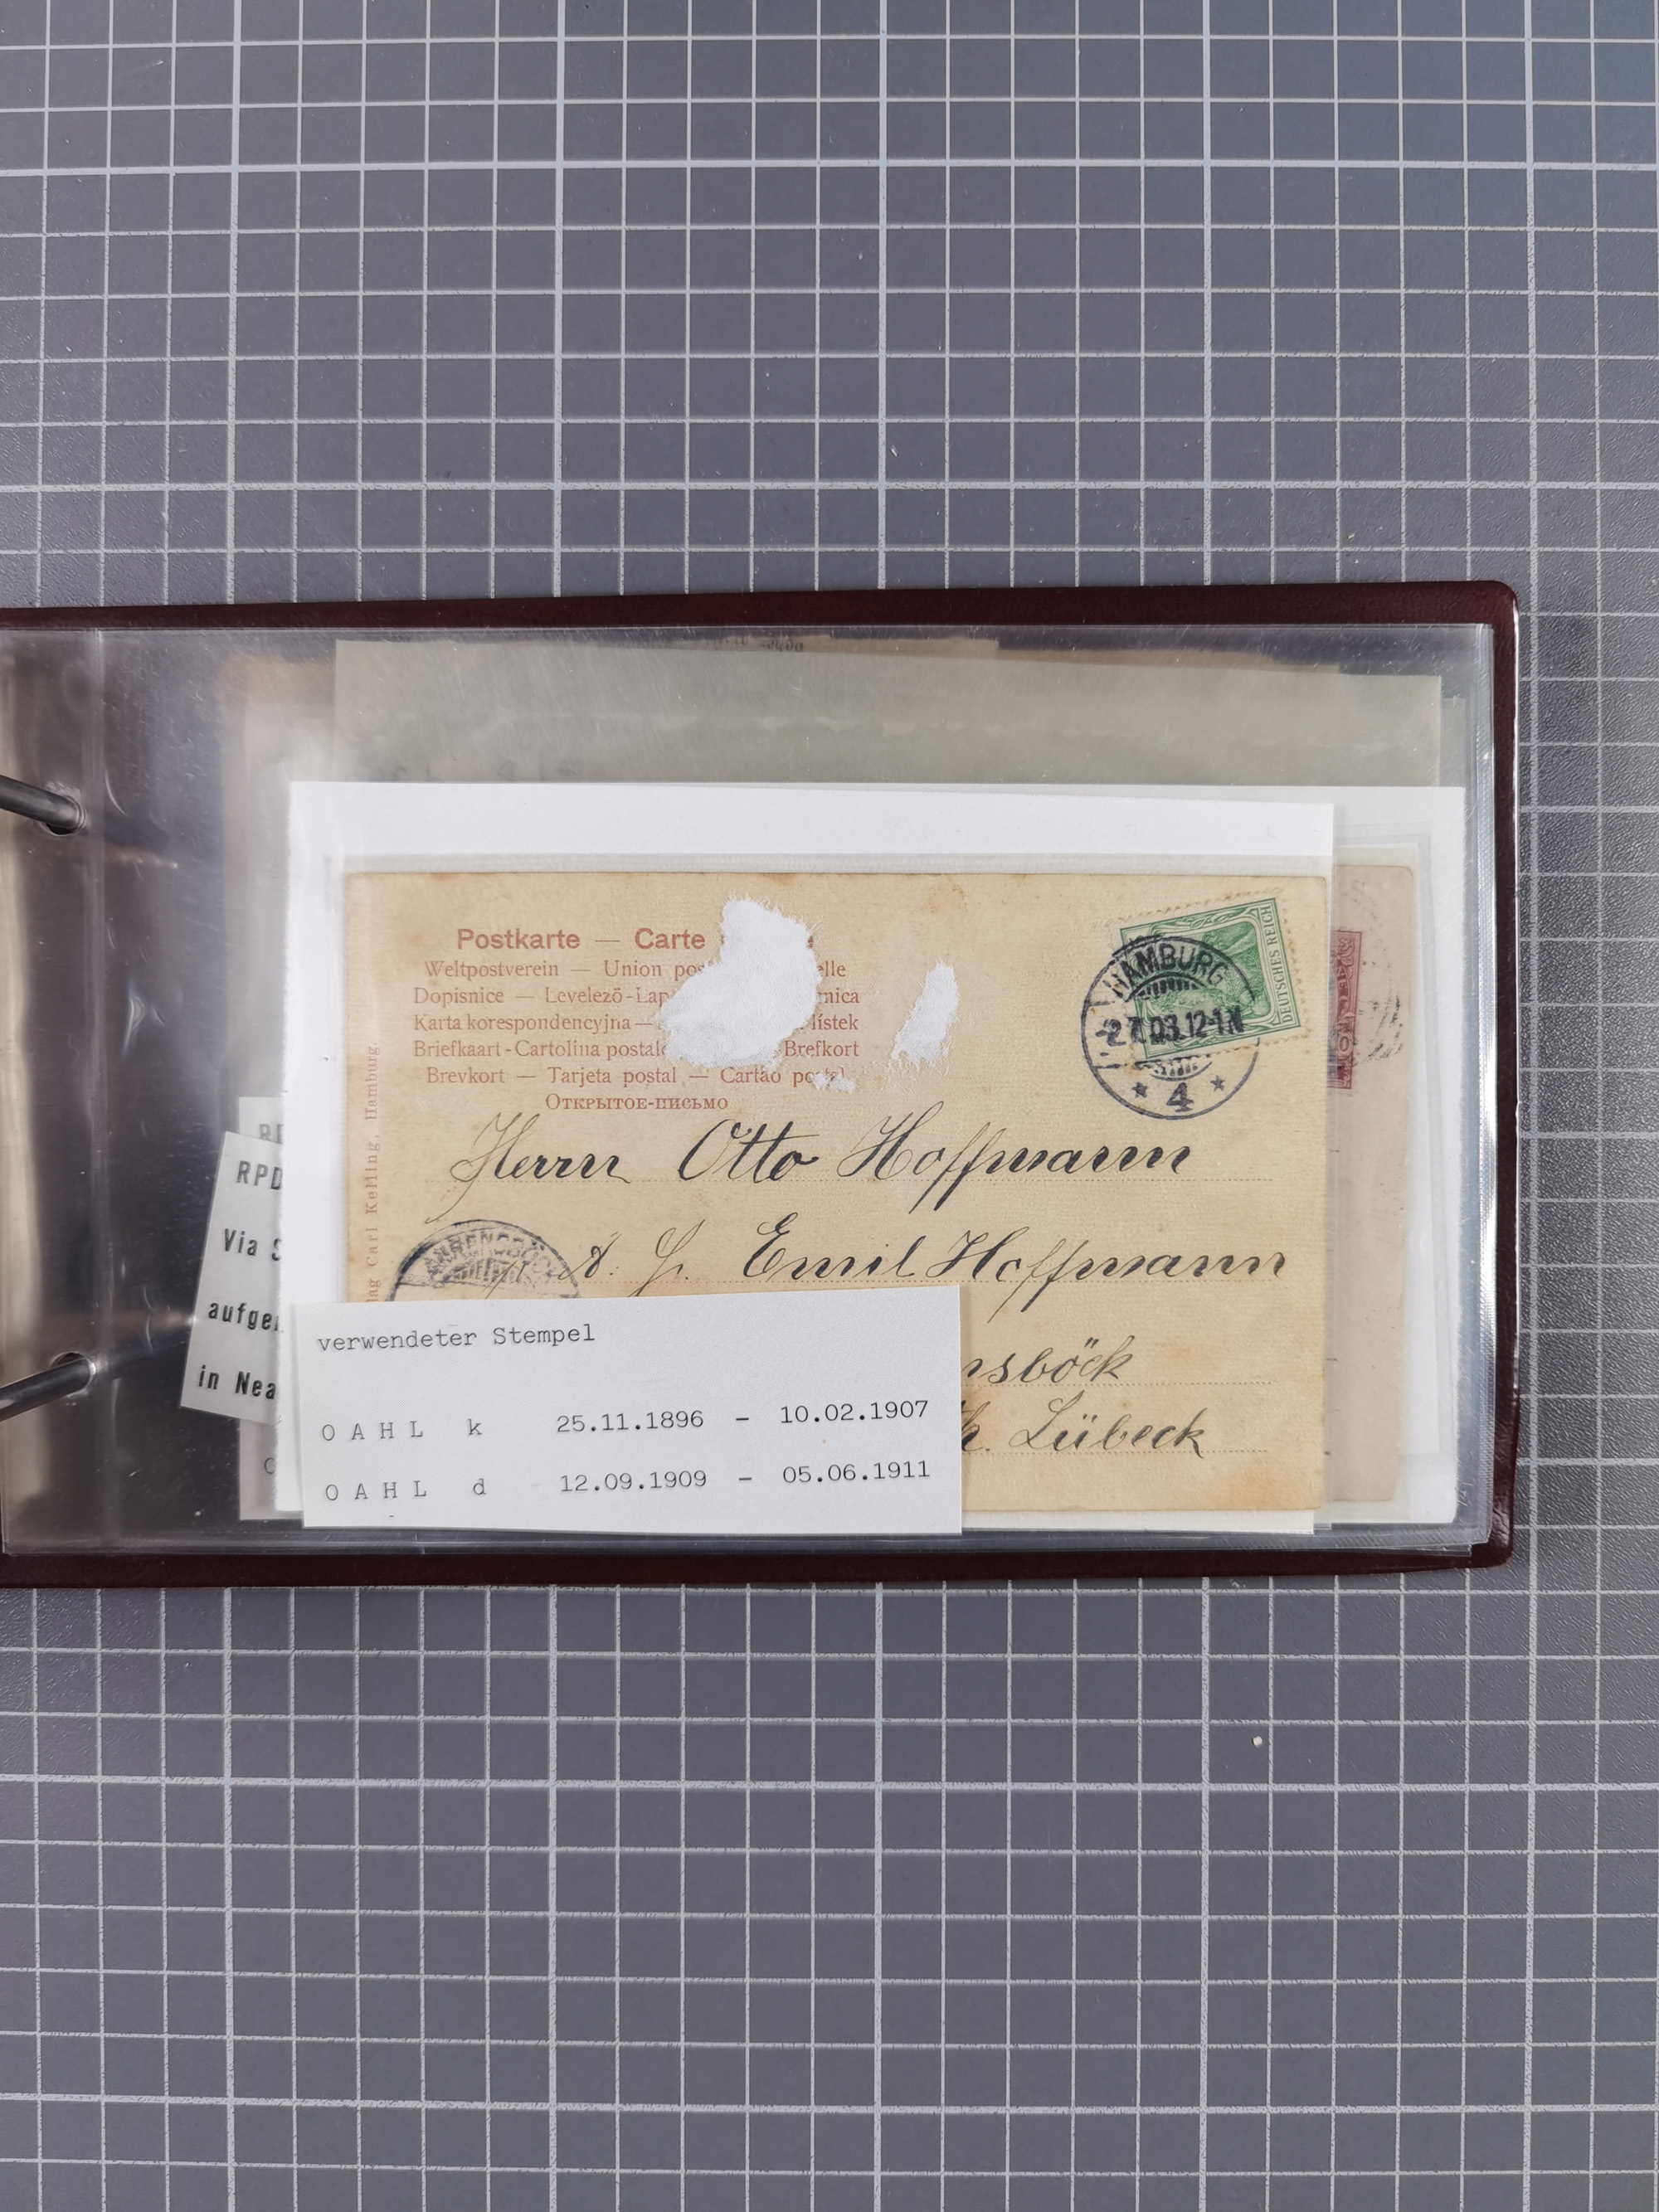 Postkarte — Carte
Weltpostverein — Union pos elle
Dopisnice — Levelező-Lap nica
Karta korespondencyjna — lístek
Briefkaart - Cartolina postale Brefkort
Brevkort — Tarjeta postal — Cartão postal
Открытое-письмо
HAMBURG
12-1N
* 4 *
DEUTSCHES REICH
Herrn Otto Hoffmann
Emil Hoffmann
nsböck
Lübeck
ag Carl Kelling, Hamburg.
RPD
Via S
aufge
in Nea
verwendeter Stempel
O A H L k 25.11.1896 - 10.02.1907
O A H L d 12.09.1909 - 05.06.1911